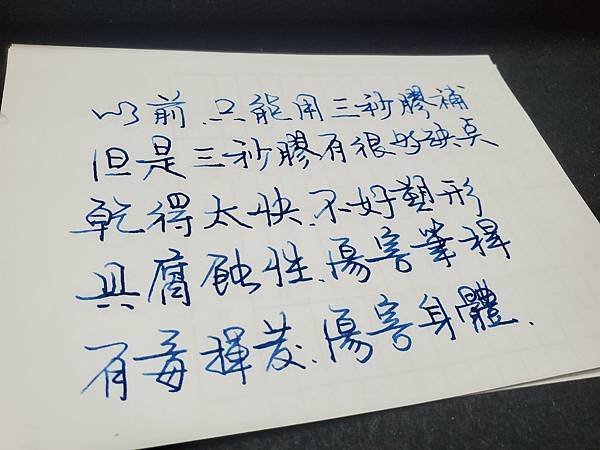 以前、只能用三秒膠補
但是三秒膠有很多缺點
乾得太快、不好塑形
具腐蝕性、傷害筆桿
有毒揮發、傷害身體、